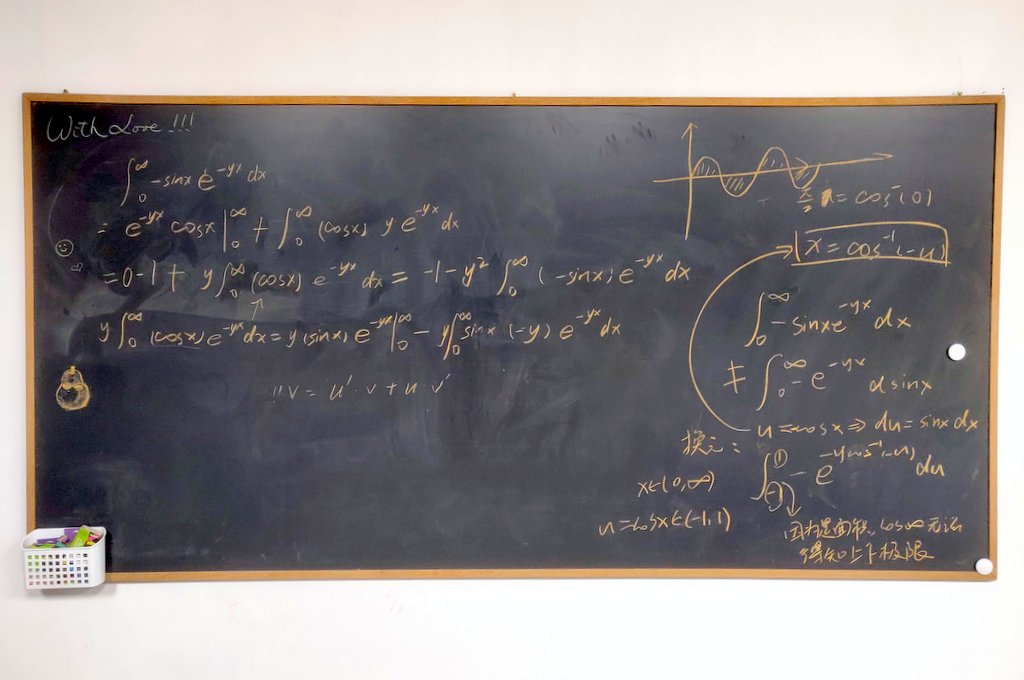 With Love !!!
∫₀^∞ -sinx e^{-yx} dx
= e^{-yx} cosx |₀^∞ + ∫₀^∞ (cosx) y e^{-yx} dx
= 0-1 + y∫₀^∞ (cosx) e^{-yx} dx = -1-y² ∫₀^∞ (-sinx) e^{-yx} dx
y∫₀^∞ (cosx) e^{-yx} dx = y(sinx) e^{-yx} |₀^∞ - y∫₀^∞ sinx (-y) e^{-yx} dx
uv = u'·v + u·v'
= cos⁻¹(0)
x = cos⁻¹(-u)
∫₀^∞ -sinx e^{-yx} dx
≠ ∫₀^∞ -e^{-yx} dsinx
换元:
u = -cosx ⇒ du = sinx dx
∫₋₁^1 - e^{-y cos⁻¹(-u)} du
x∈(0,∞)
u = -cosx ∈ (-1,1)
因为是面积, cos∞ 无法
得知上下极限